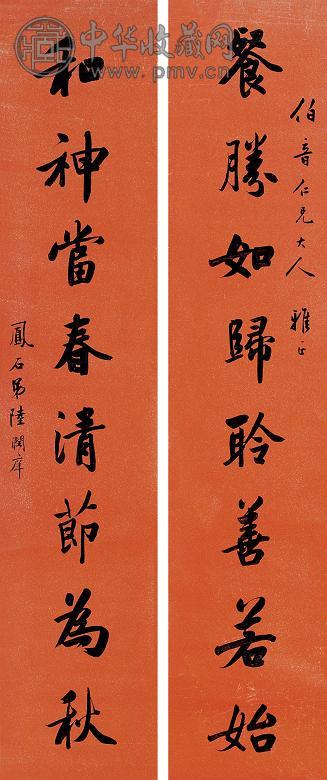 中华收藏网
www.pmv.cn
伯音仁兄大人 雅正
餐勝如歸聆善若始
和神當春清節為秋
鳳石弟陸潤庠